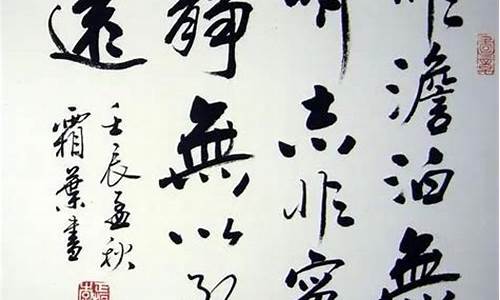 非澹泊無
明志非寧
靜無以致
遠
壬辰孟秋
霜葉書